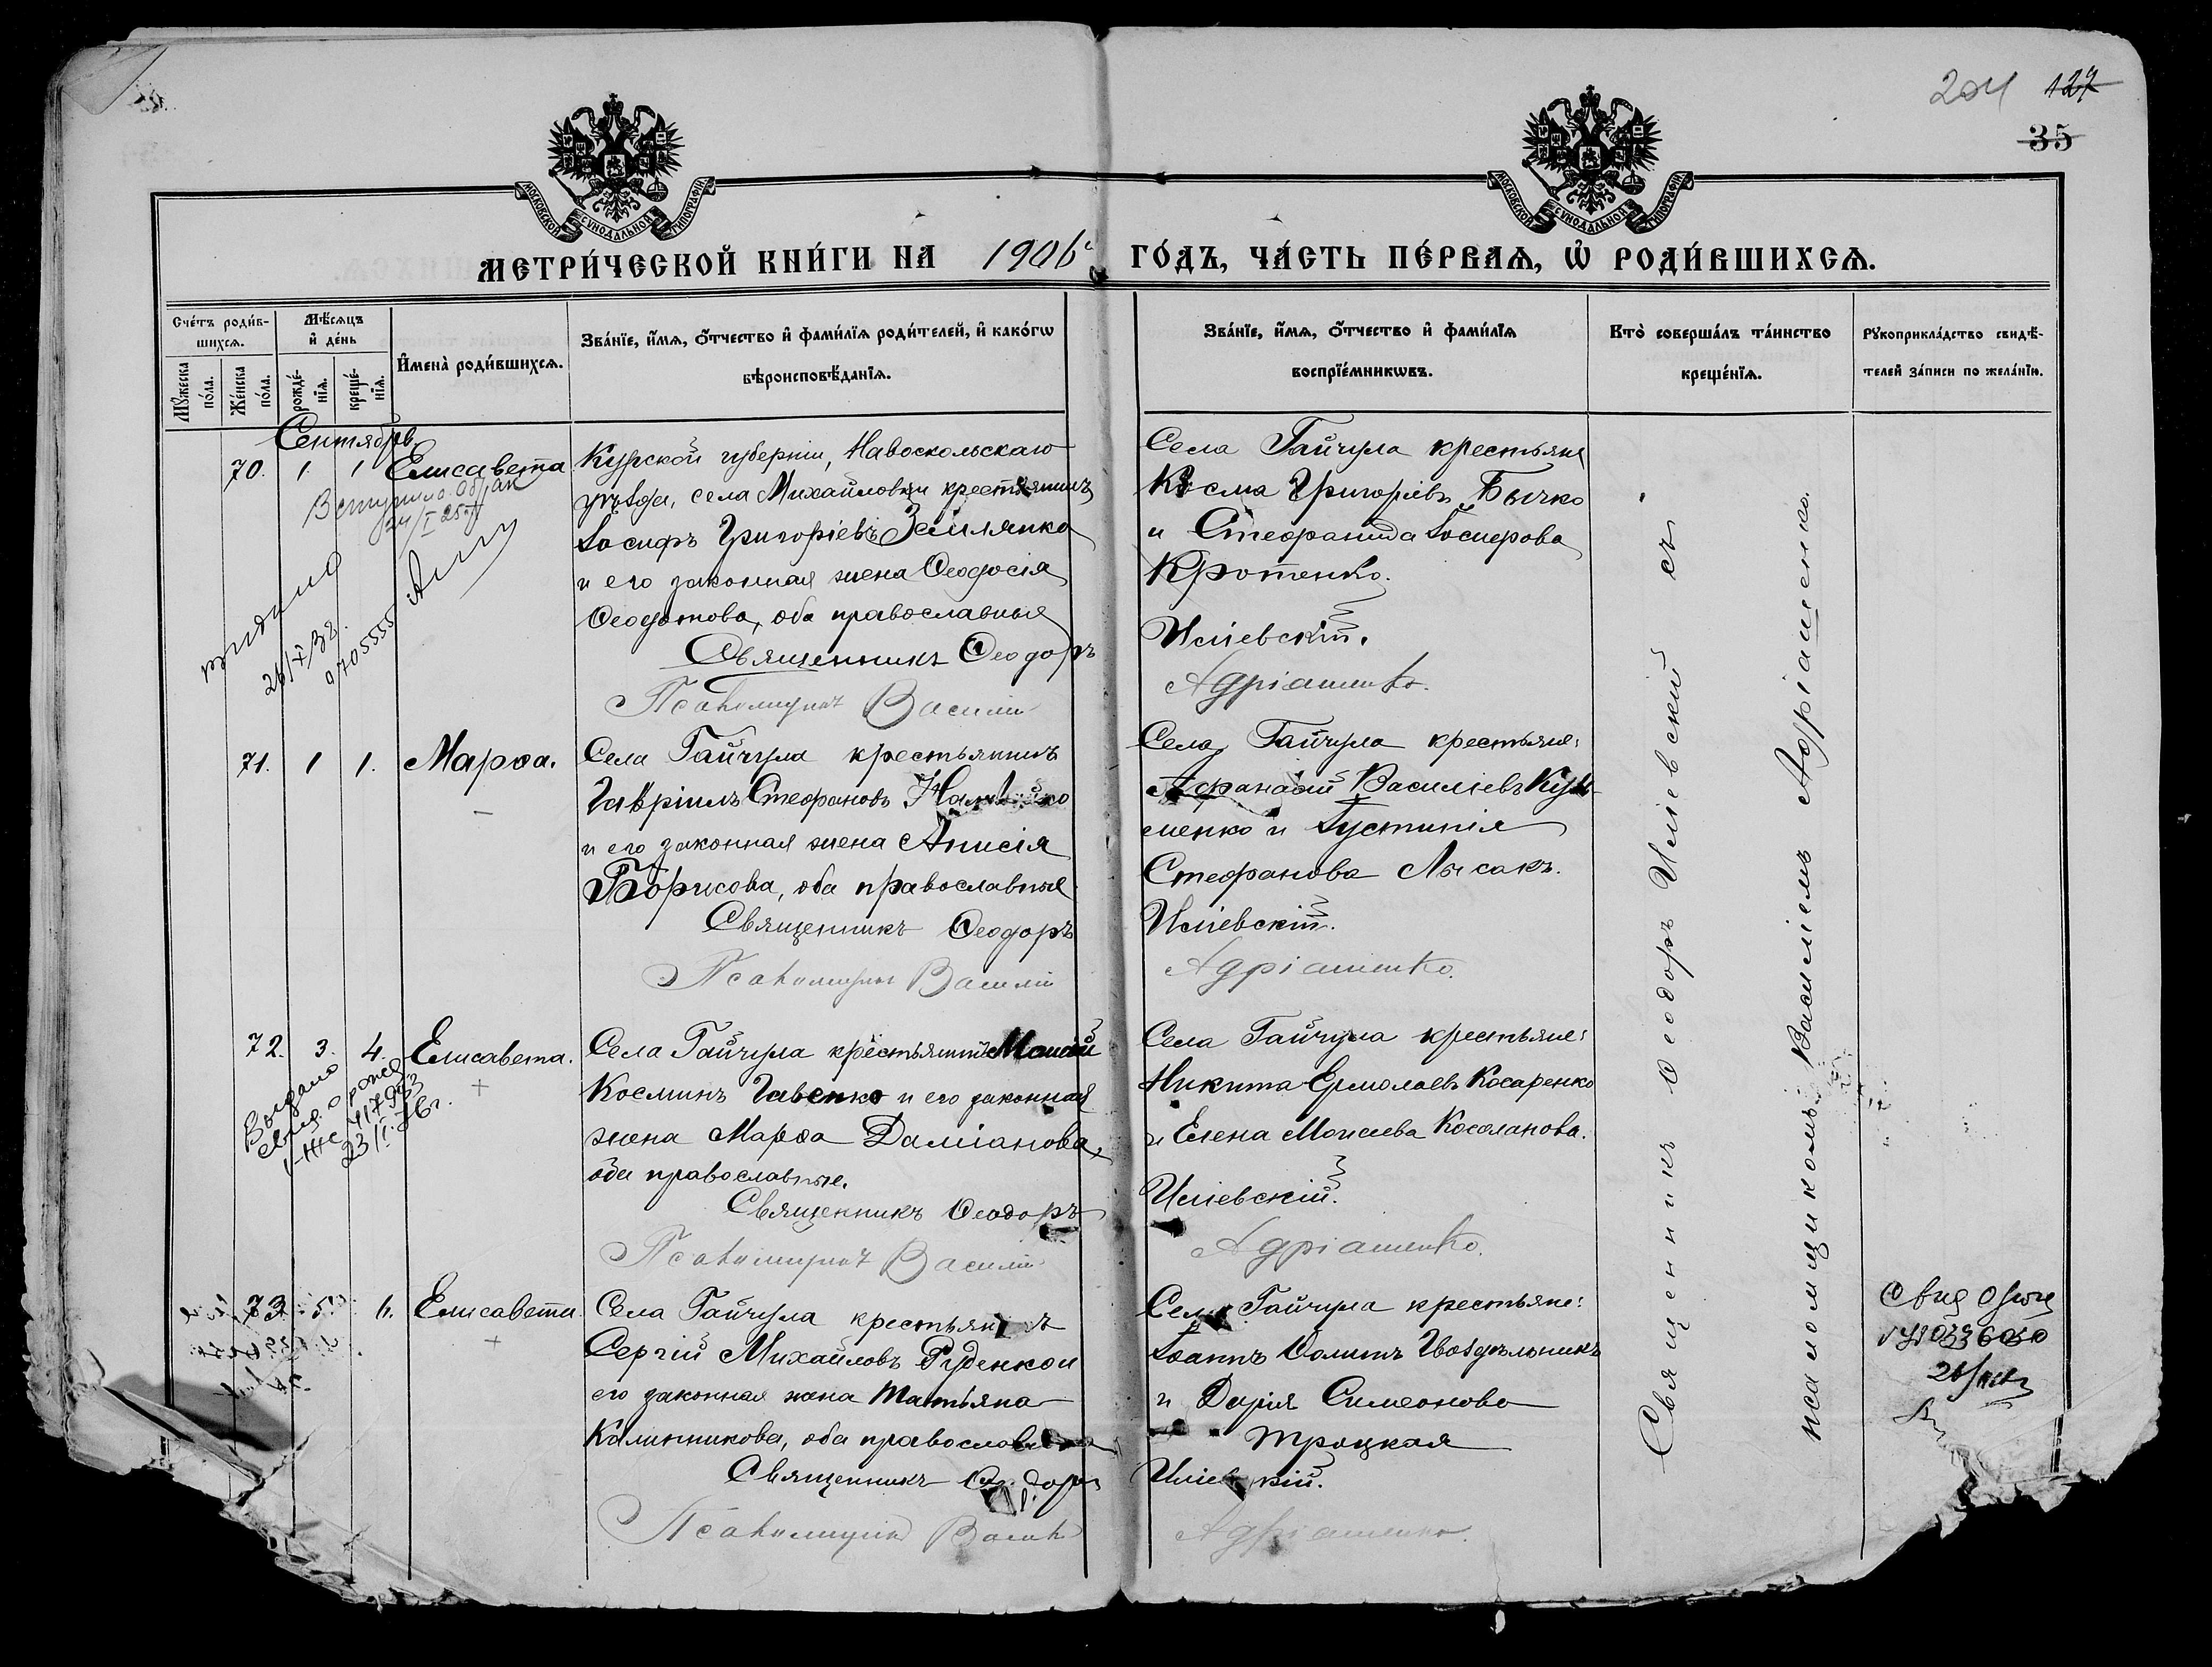 204 127
35
МОСКОВСКОЙ СУНОДАЛЬНОЙ ТИПОГРАФІИ
МОСКОВСКОЙ СУНОДАЛЬНОЙ ТИПОГРАФІИ
МЕТРИ́ЧЕСКОЙ КНИ́ГИ НА 1906й ГО́ДЪ, ЧА́СТЬ ПЕ́РВАѦ, Ѡ҆ РОДИ́ВШИХСѦ.
Сче́тъ роди́в-
шихсѧ.
Мꙋ́жеска по́ла.
Же́нска по́ла.
Мѣ́сѧцъ
и҆ де́нь
рожде́-
нїѧ.
креще́-
нїѧ.
И҆мена̀ роди́вшихсѧ.
Зва́нїе, и҆́мѧ, ѻ҆́тчество и҆ фами́лїѧ роди́телей, и҆ како́гѡ
вѣроисповѣ́данїѧ.
Зва́нїе, и҆́мѧ, ѻ҆́тчество и҆ фами́лїѧ
воспрїе́мникѡвъ.
Кто̀ соверша́лъ та́инство
креще́нїѧ.
Рꙋкоприкла́дство свидѣ́-
телей за́писи по жела́нїю.
Сентябрь.
70. 1 1 Елисавета
24/I 25
26/X/32.
Курской губерніи, Навоскольскаго
уѣзда, села Михайловки крестьянинъ
Іосифъ Григоріевъ Землянко
и его законная жена Ѳеодосія
Ѳеодотова, оба православные
Священникъ Ѳеодоръ
Псаломщикъ Василій
Села Гайчула крестьяне
Косма Григоріевъ Бычко
и Стефанида Іосифова
Кротенко.
Иліевскій.
Адріашенко.
71. 1 1. Марѳа.
Села Гайчула крестьянинъ
Гавріилъ Стефановъ
и его законная жена Анисія
Борисова, оба православные
Священникъ Ѳеодоръ
Псаломщикъ Василій
Села Гайчула крестьяне:
Аѳанасій Василіевъ Кузь-
менко и Іустинія
Стефанова Лысакъ.
Иліевскій.
Адріашенко.
72. 3. 4. Елисавета.
Выдано
свид. о рожд
23/I.
Села Гайчула крестьянинъ Моисей
Косминъ Гавенко и его законная
жена Марѳа Даміанова,
оба православные.
Священникъ Ѳеодоръ
Псаломщикъ Василій
Села Гайчула крестьяне:
Никита Ермолаевъ Косаренко
и Елена Моисеева Косолапова.
Иліевскій.
Адріашенко.
73. 5. 6. Елисавета.
Села Гайчула крестьянинъ
Сергій Михайловъ Руденко и
его законная жена Татьяна
Калинникова, оба православные
Священникъ Ѳеодоръ
Псаломщикъ Василій
Села Гайчула крестьяне:
Іоаннъ Ѳоминъ Гвоздѣльникъ
и Дарія Симеонова
Троцкая
Иліевскій.
Адріашенко.
Священникъ Ѳеодоръ Иліевскій съ
псаломщикомъ Василіемъ Адріашенко.
Свид о рожд